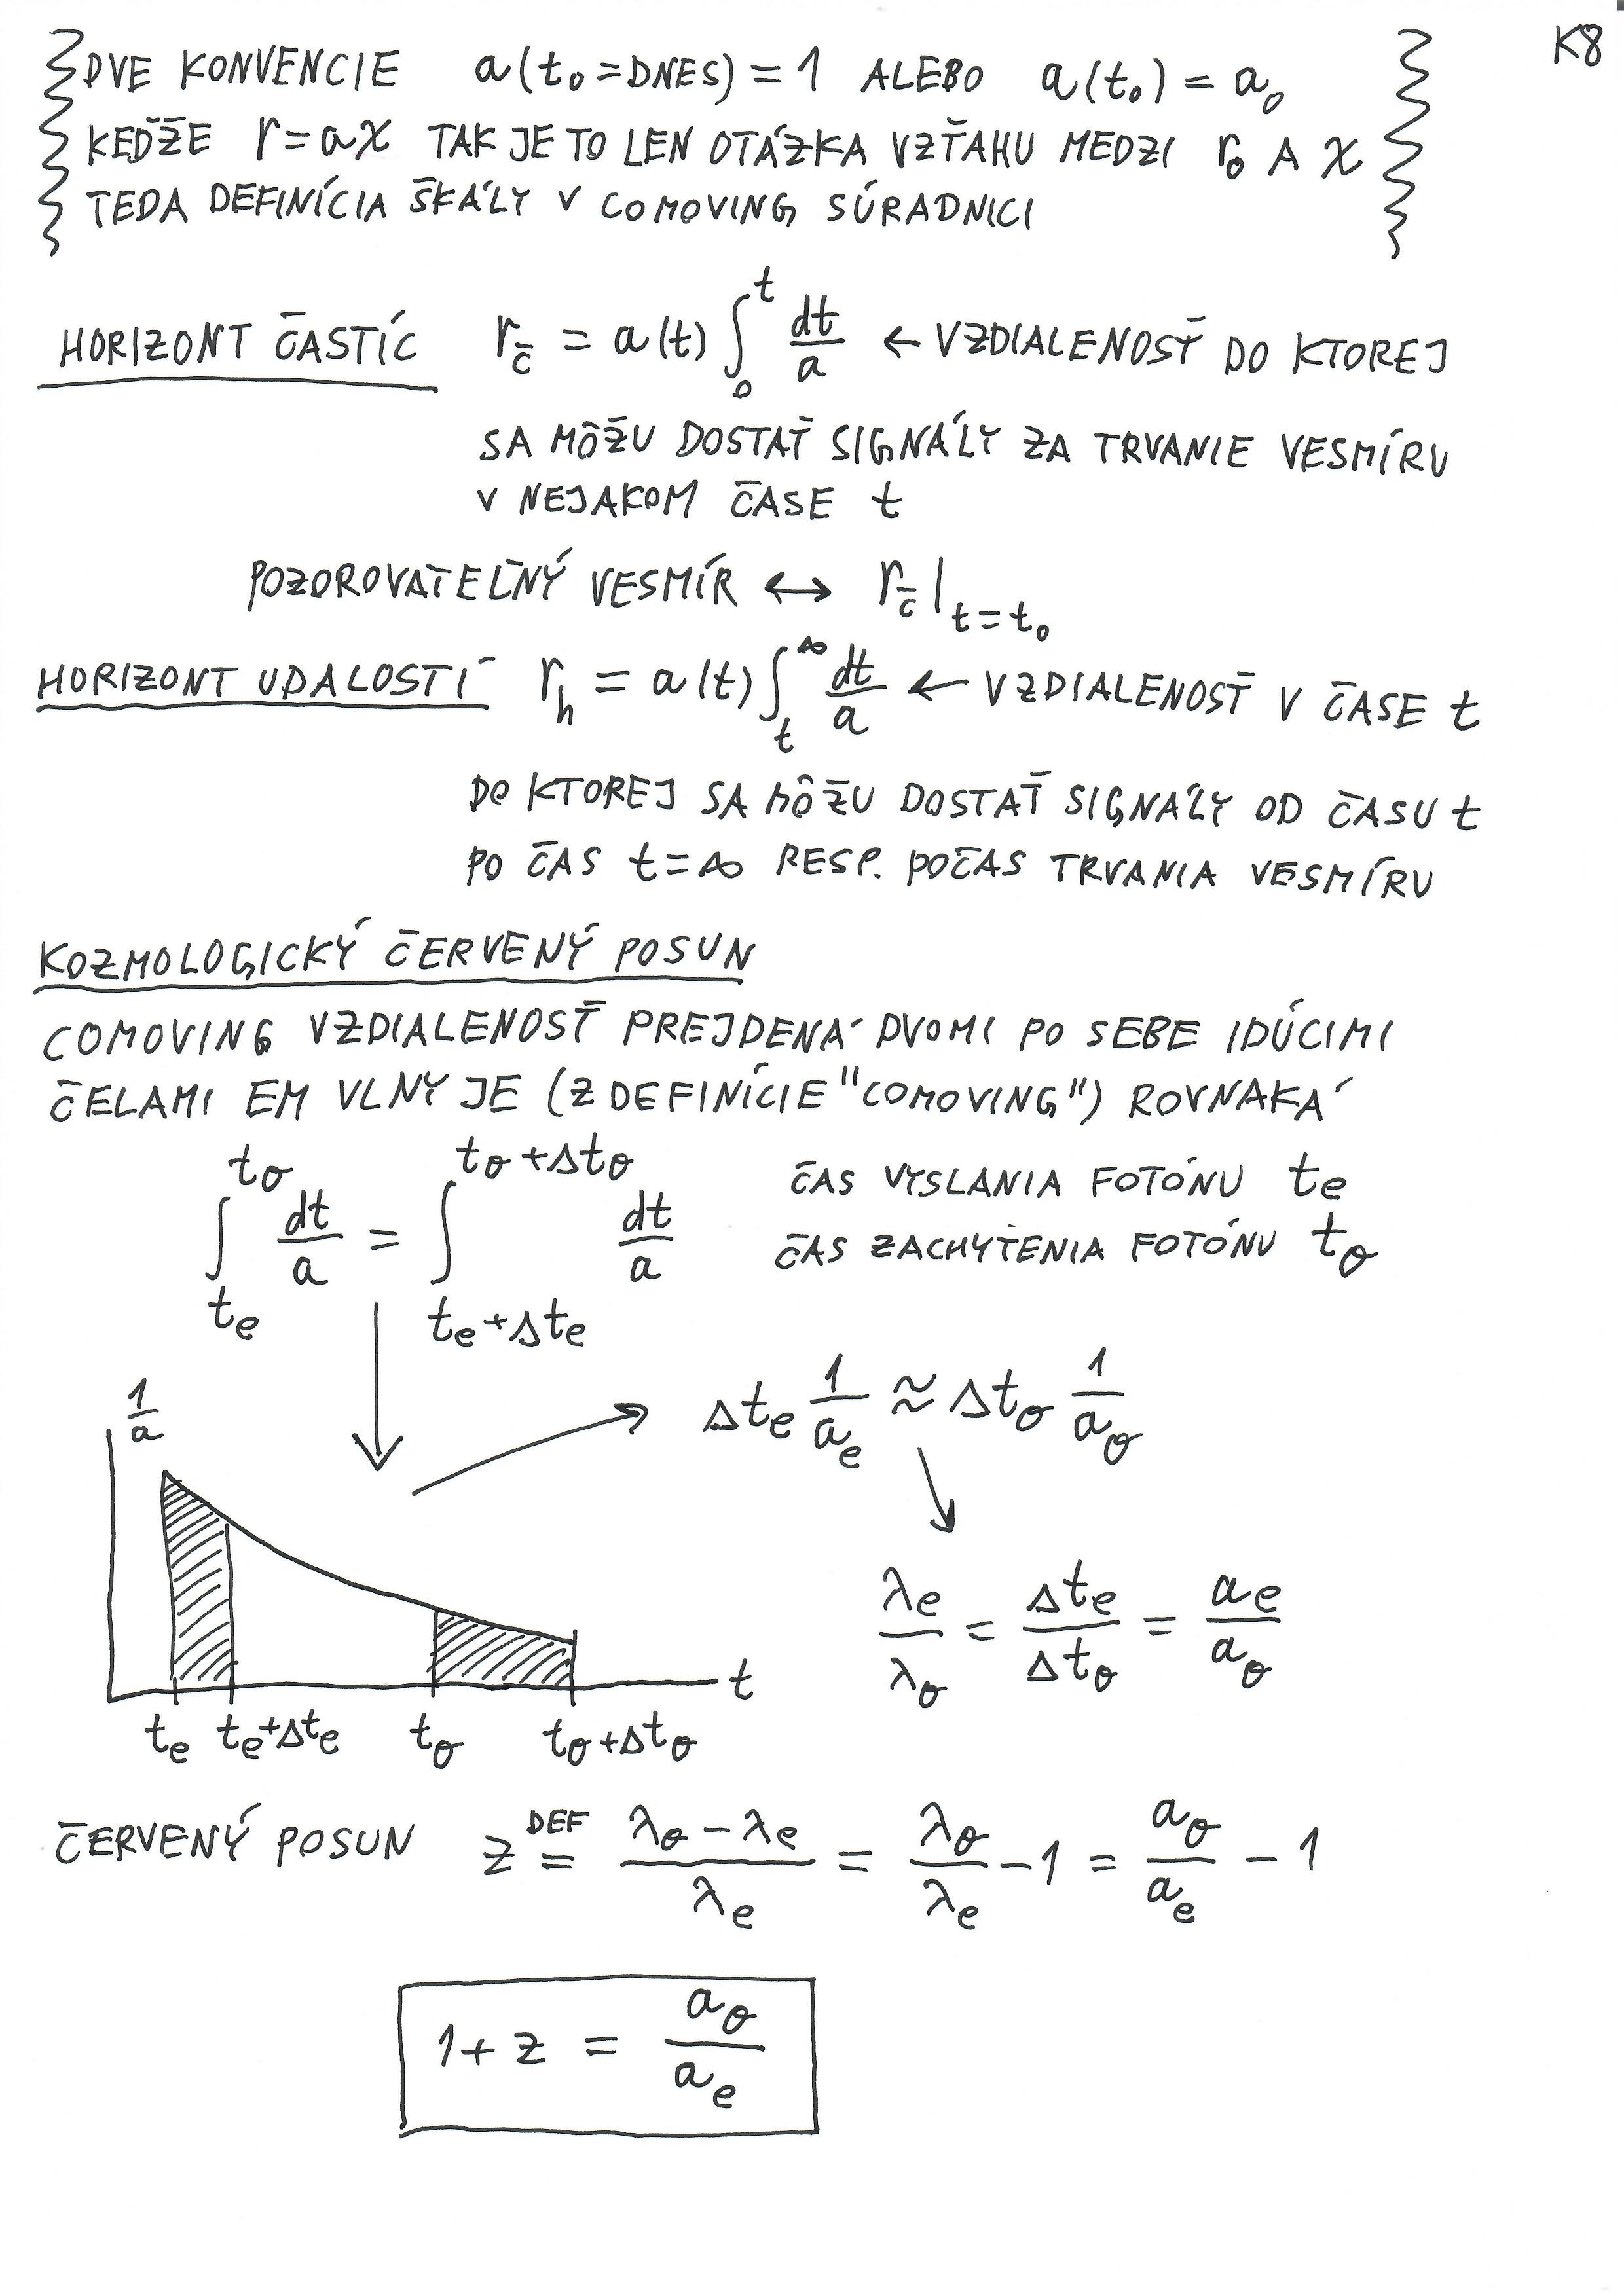 K8
DVE KONVENCIE a(t₀=DNES) = 1 ALEBO a(t₀) = a₀
KEĎŽE r=aχ TAK JE TO LEN OTÁZKA VZŤAHU MEDZI r₀ A χ
TEDA DEFINÍCIA ŠKÁLY V COMOVING SÚRADNICI
HORIZONT ČASTÍC r_č = a(t) ∫₀^t dt/a ← VZDIALENOSŤ DO KTOREJ
SA MÔŽU DOSTAŤ SIGNÁLY ZA TRVANIE VESMÍRU
V NEJAKOM ČASE t
POZOROVATEĽNÝ VESMÍR ↔ r_č|_{t=t₀}
HORIZONT UDALOSTÍ r_h = a(t) ∫_t^∞ dt/a ← VZDIALENOSŤ V ČASE t
DO KTOREJ SA MÔŽU DOSTAŤ SIGNÁLY OD ČASU t
PO ČAS t=∞ RESP. POČAS TRVANIA VESMÍRU
KOZMOLOGICKÝ ČERVENÝ POSUN
COMOVING VZDIALENOSŤ PREJDENÁ DVOMI PO SEBE IDÚCIMI
ČELAMI EM VLNY JE (Z DEFINÍCIE "COMOVING") ROVNAKÁ
∫_{t_e}^{t_σ} dt/a = ∫_{t_e+Δt_e}^{t_σ+Δt_σ} dt/a
ČAS VYSLANIA FOTÓNU t_e
ČAS ZACHYTENIA FOTÓNU t_σ
Δt_e 1/a_e ≈ Δt_σ 1/a_σ
1/a
λ_e/λ_σ = Δt_e/Δt_σ = a_e/a_σ
t
t_e t_e+Δt_e t_σ t_σ+Δt_σ
ČERVENÝ POSUN z DEF = (λ_σ − λ_e)/λ_e = λ_σ/λ_e − 1 = a_σ/a_e − 1
1 + z = a_σ/a_e